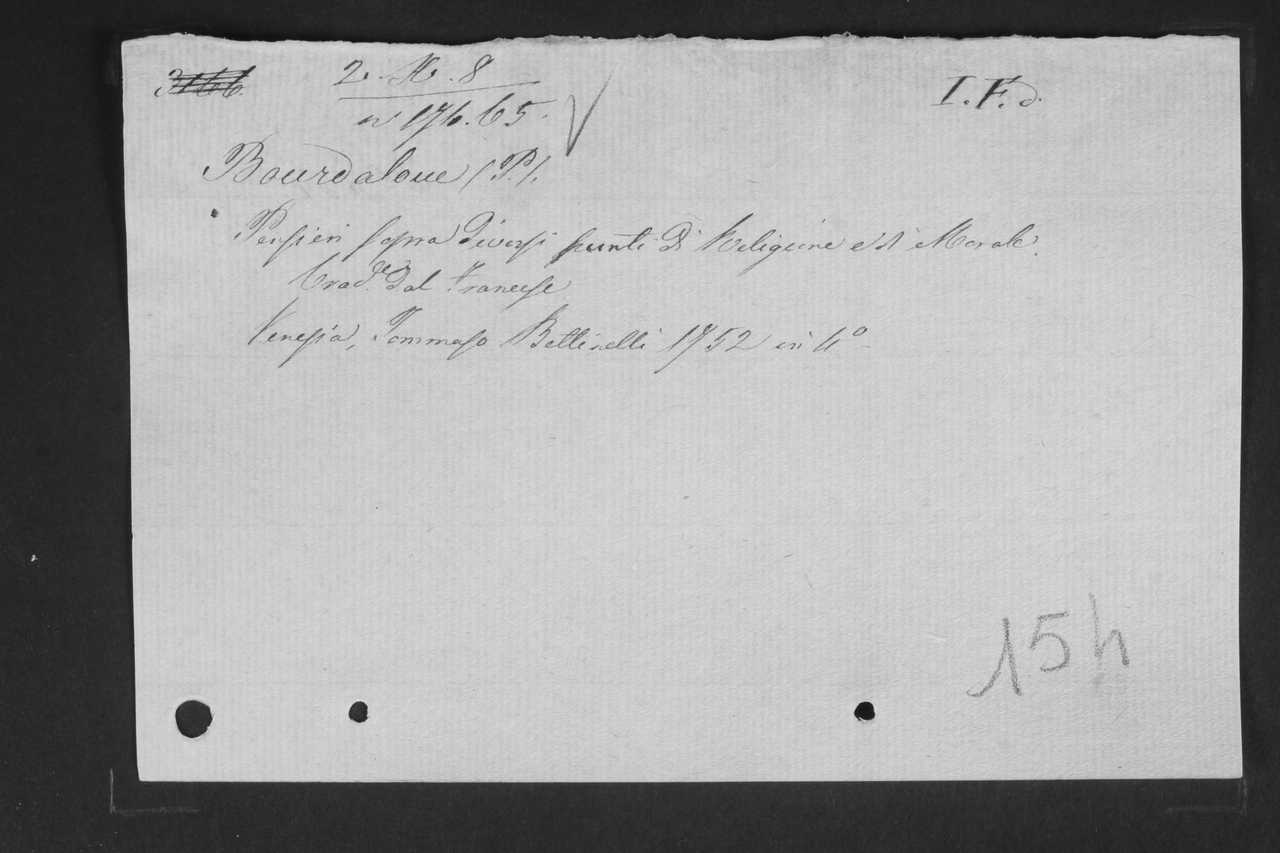 3166. 2. H. 8 I. F. d.
in 176. 65.
Bourdaloue (P.).
Pensieri sopra diversi punti di Religione e di Morale.
trad.e dal Francese
Venezia, Tommaso Bettinelli 1752 in 4°
15h